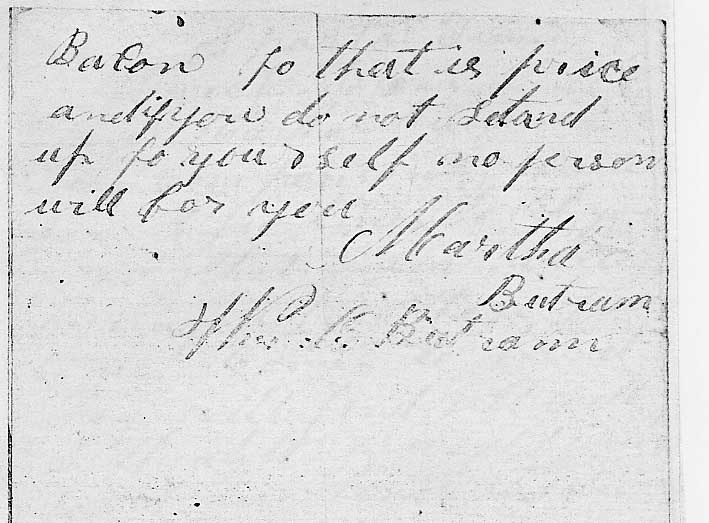 Bacon fo that is price
and if you do not stand
up fo you rself no person
will for you
Martha
Butram
Butram